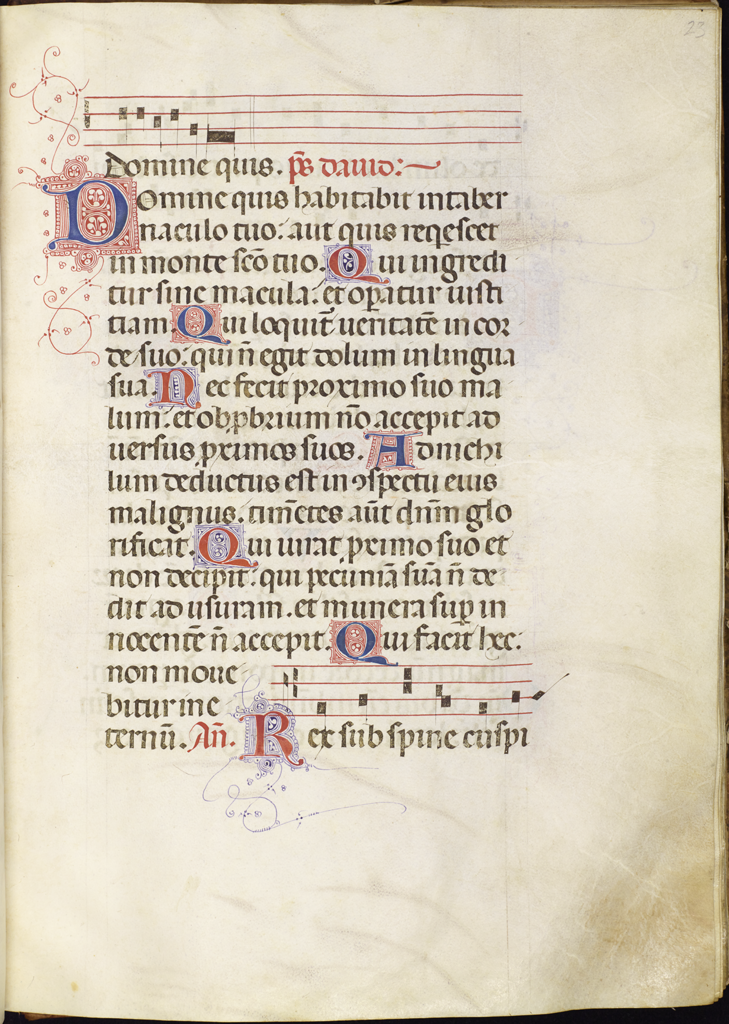 23
Domine quis. p̄s dauid:~
Domine quis habitabit in taber
naculo tuo: aut quis reqescet
in monte sc̄o tuo. Qui ingredi
tur sine macula: et oꝑatur iusti
tiam. Qui loquit᷑ ueritatē in cor
de suo: qui n̄ egit dolum in lingua
sua. Nec fecit proximo suo ma
lum: et obꝓbrium nō accepit ad
uersus ꝓximos suos. Ad nichi
lum deductus est in ꝯspectu eius
malignus. tim̄etes aūt dn̄m glo
rificat. Qui iurat ꝓximo suo et
non decipit: qui pecuniā suā n̄ de
dit ad usuram. et munera suꝑ in
nocentē n̄ accepit. Qui facit hec:
non moue
bitur in e
ternū. Añ. Rex sub spine cuspi